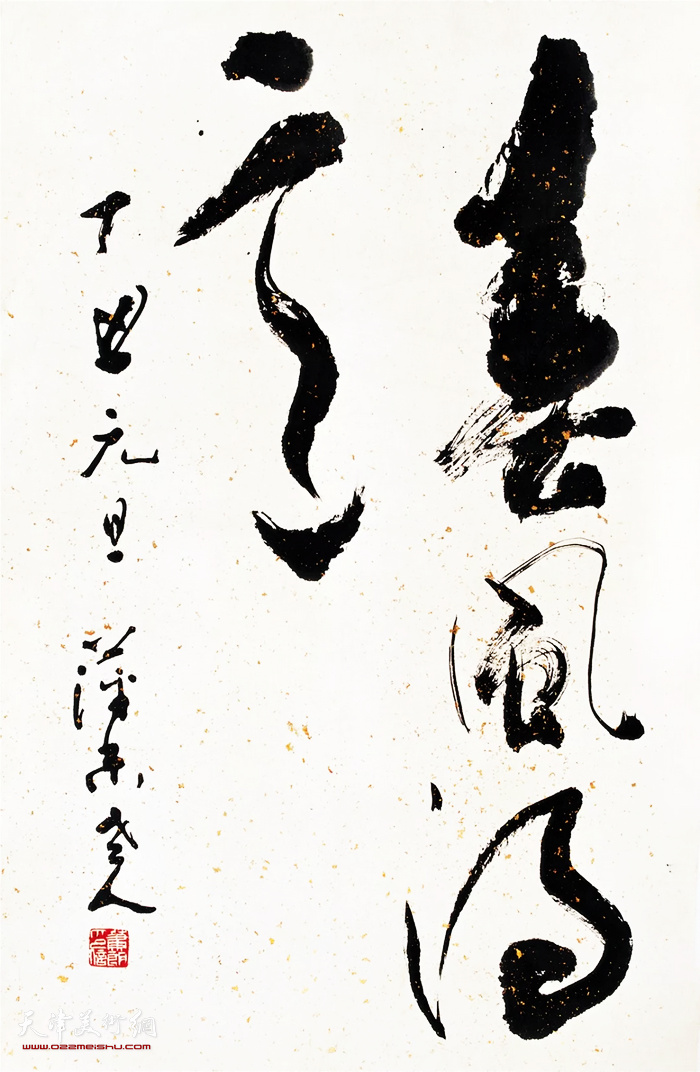 春風得
意
丁丑元旦 老人
天津美術網
www.022meishu.com